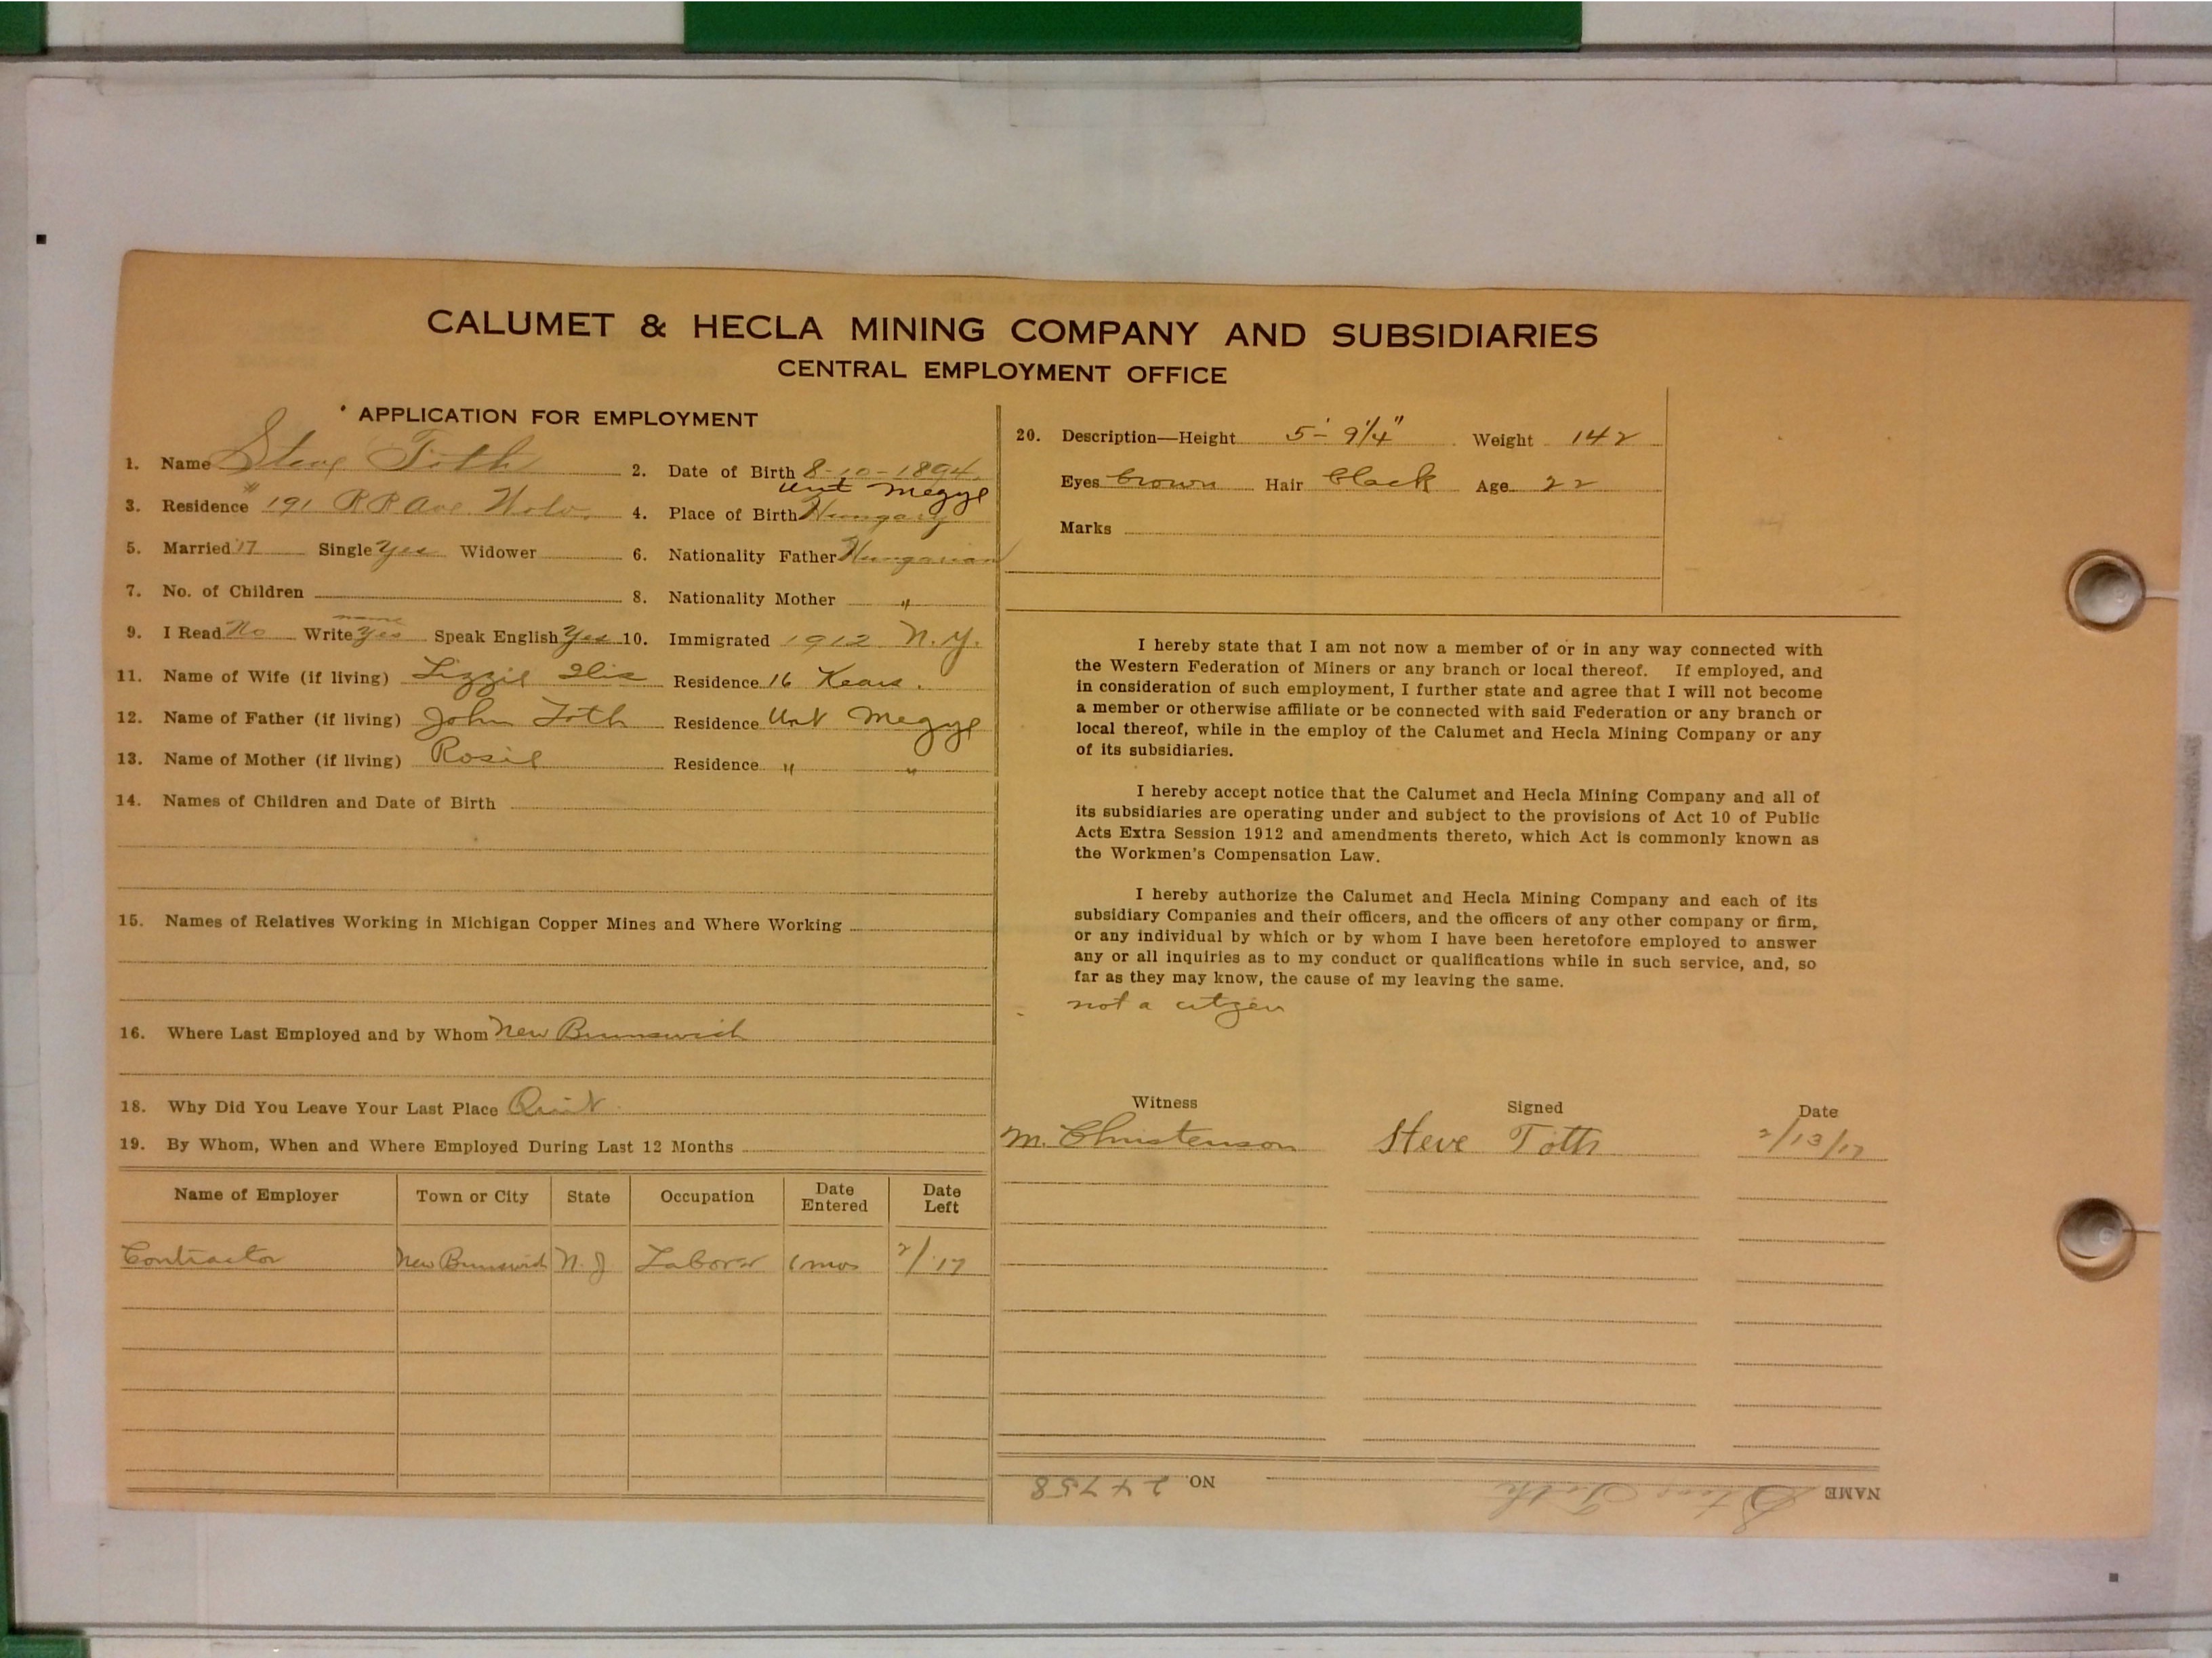 CALUMET & HECLA MINING COMPANY AND SUBSIDIARIES
CENTRAL EMPLOYMENT OFFICE
APPLICATION FOR EMPLOYMENT
1. Name Steve Toth 2. Date of Birth 8-10-1894
Unt Megye
3. Residence # 191 RR Ave. 4. Place of Birth Hungary
5. Married '17 Single Yes Widower 6. Nationality Father Hungarian
7. No. of Children 8. Nationality Mother "
name
9. I Read No Write Yes Speak English Yes 10. Immigrated 1912 N.Y.
11. Name of Wife (if living) Lizzie Residence 16 Kears.
12. Name of Father (if living) John Toth Residence Unt Megye
13. Name of Mother (if living) Rosie Residence " "
14. Names of Children and Date of Birth
15. Names of Relatives Working in Michigan Copper Mines and Where Working
16. Where Last Employed and by Whom New Brunswick
18. Why Did You Leave Your Last Place Quit
19. By Whom, When and Where Employed During Last 12 Months
Name of Employer Town or City State Occupation Date Entered Date Left
Contractor New Brunswick N.J Laborer 6 mos 2/'17
20. Description—Height 5'- 9 1/4" Weight 142
Eyes brown Hair black Age 22
Marks
I hereby state that I am not now a member of or in any way connected with
the Western Federation of Miners or any branch or local thereof. If employed, and
in consideration of such employment, I further state and agree that I will not become
a member or otherwise affiliate or be connected with said Federation or any branch or
local thereof, while in the employ of the Calumet and Hecla Mining Company or any
of its subsidiaries.
I hereby accept notice that the Calumet and Hecla Mining Company and all of
its subsidiaries are operating under and subject to the provisions of Act 10 of Public
Acts Extra Session 1912 and amendments thereto, which Act is commonly known as
the Workmen's Compensation Law.
I hereby authorize the Calumet and Hecla Mining Company and each of its
subsidiary Companies and their officers, and the officers of any other company or firm,
or any individual by which or by whom I have been heretofore employed to answer
any or all inquiries as to my conduct or qualifications while in such service, and, so
far as they may know, the cause of my leaving the same.
not a citzen
Witness Signed Date
M. Christenson Steve Toth 2/13/17
NAME Steve Toth NO. 24758